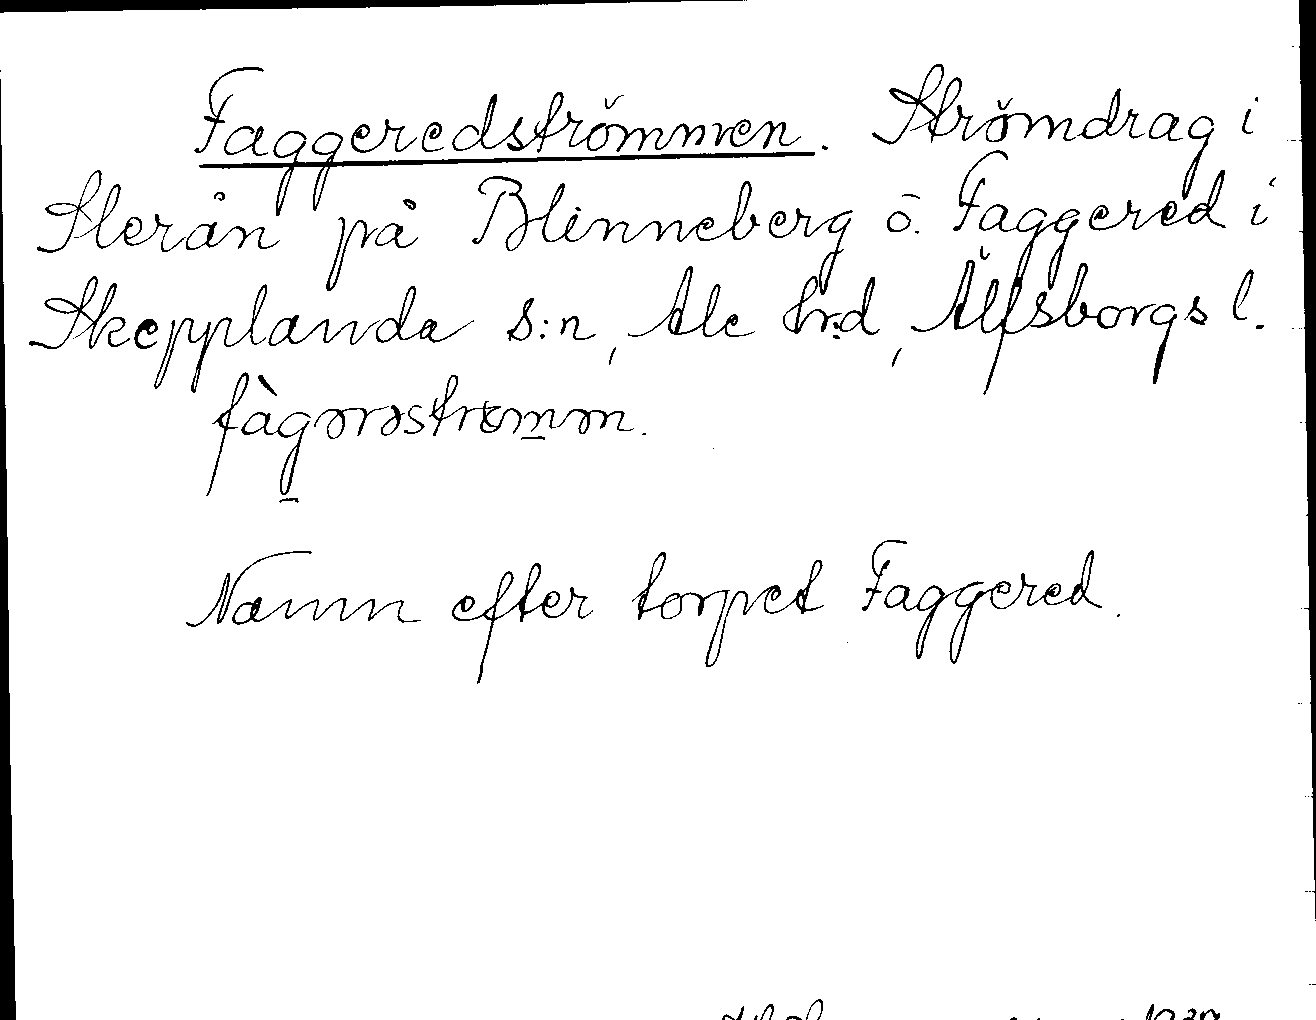 Faggeredströmmen. Strömdrag i
Slerån på Blinneberg ö. Faggered i
Skepplanda s:n, Ale hr:d, Älfsborgs l.
fàgərəstrɞmən.
Namn efter torpet Faggered.